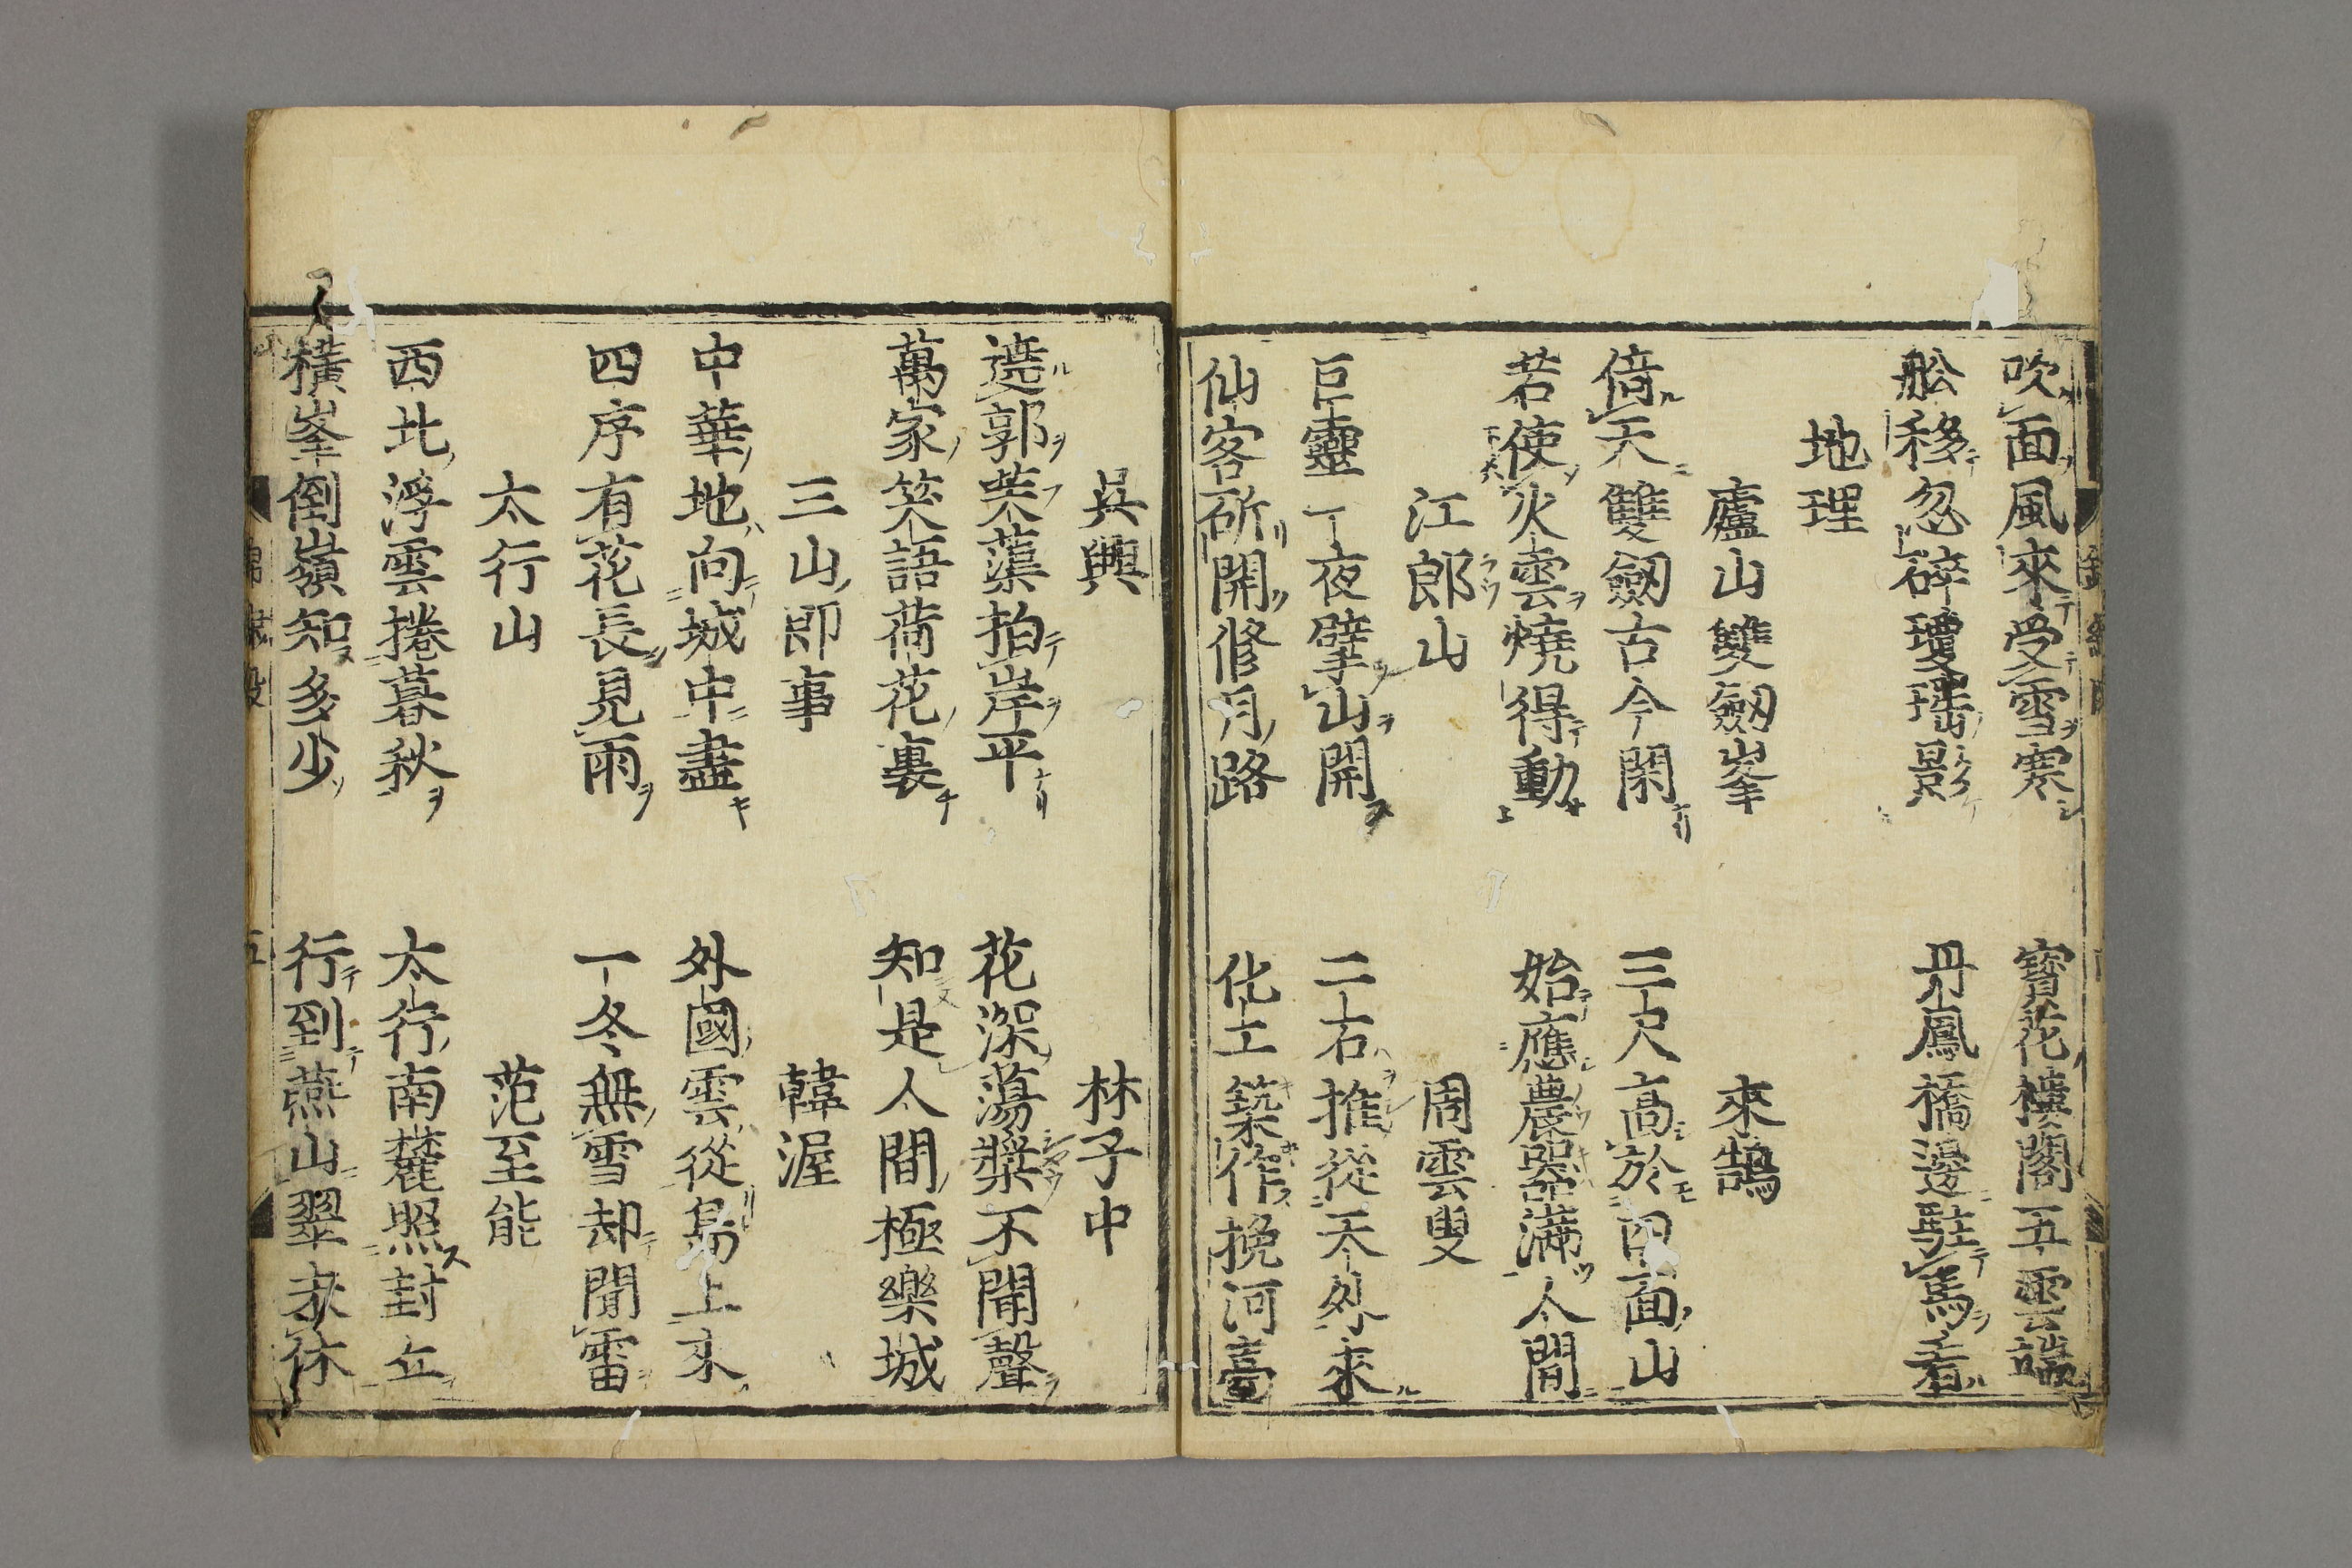 吹面風來受雪寒　寳花樓閣五雲端
舩移忽碎瓊瑤影　丹鳳橋邊駐馬看
地理
廬山雙劔峯　來鵠
倚天雙劔古今閑　三尺高於四面山
若使火雲燒得動　始應農器滿人間
江郎山　周雲叟
巨靈一夜擘山開　二右推從天外來
仙客斫開修月路　化工築作挽河臺
吳興　林子中
遶郭芰蕖拍岸平　花深蕩槳不聞聲
萬家笑語荷花裏　知是人間極樂城
三山即事　韓渥
中華地向城中盡　外國雲從島上來
四序有花長見雨　一冬無雪却聞雷
太行山　范至能
西北浮雲捲暮秋　太行南麓照封丘
橫峯倒嶺知多少　行到燕山翠未休
五